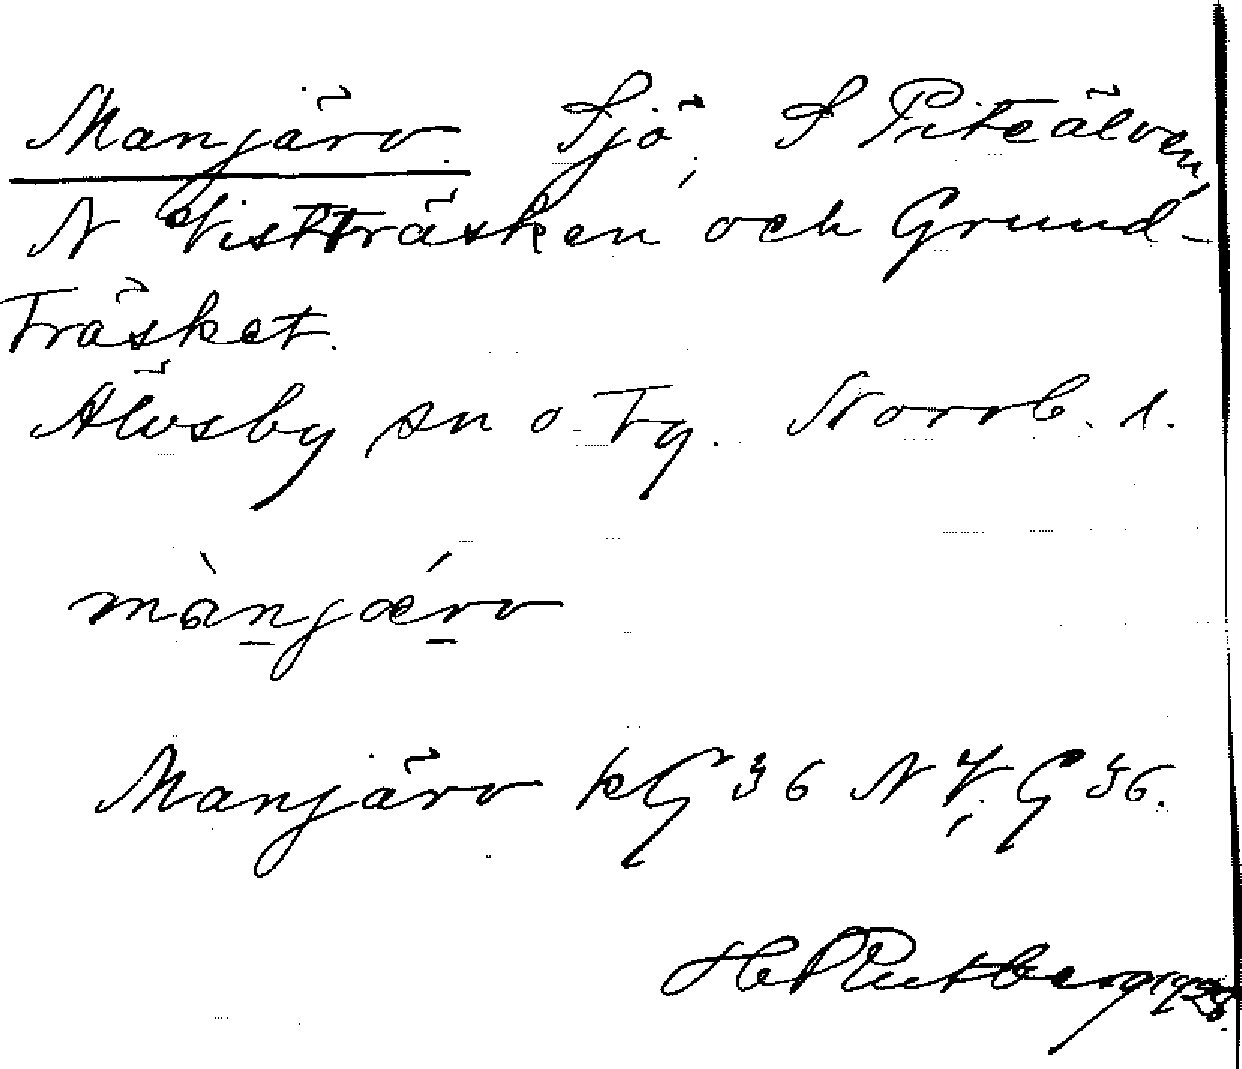 Manjärv. Sjö, S Piteälven,
N Vistträsken och Grund-
träsket.
Älvsby sn o tg. Norrb. l.
mànjǽrv
Manjärv kG 36 NV, G 36.
H Rutberg